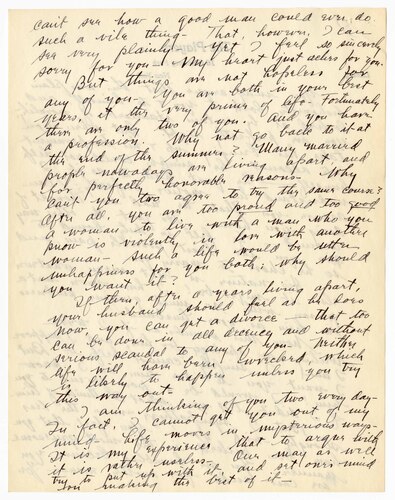 can't see how a good man could ever do
such a vile thing - that, however, I can
see very plainly - yet I feel so sincerely
sorry for you - My heart just aches for you.
But things are not hopeless for
any of you - You are both in your best
years, it the very prime of life. Fortunately
there are only two of you. And you have
a profession. Why not go back to it at
the end of the summer? Many married
people nowadays are living apart, and
for perfectly honorable reasons - Why
can't you two agree to try the same course?
After all, you are too proud and too good
a woman to live with a man who you
know is violently in love with another
woman - Such a life would be utter
unhappiness for you both; why should
you want it?
If then, after a years living apart,
your husband should feel as he does
now, you can get a divorce - that too
can be done in all decency and without
serious scandal to any of you - Neither
life will have been wrecked, which
is likely to happen unless you try
this way out -
I am thinking of you two every day -
In fact, I cannot get you out of my
mind - Life moves in mysterious ways -
It is my experience that to argue with
it is rather useless - One may as well
try to put up with it and set one's mind
on making the best of it -